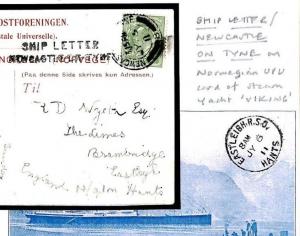 DSTFORENINGEN.
tale Universelle).
SHIP LETTER
NORVEGE
NEWCASTLE ON TYNE
(Paa denne Side skrives kun Adressen.)
Til
Esq.
The Limes
Brambridge
Eastleigh
England
Hants
SHIP LETTER/
NEWCASTLE
ON TYNE on
Norwegian UPU
card of steam
Yacht 'VIKING'
EASTLEIGH.R.S.O.
8 AM
JY 6
11
HANTS